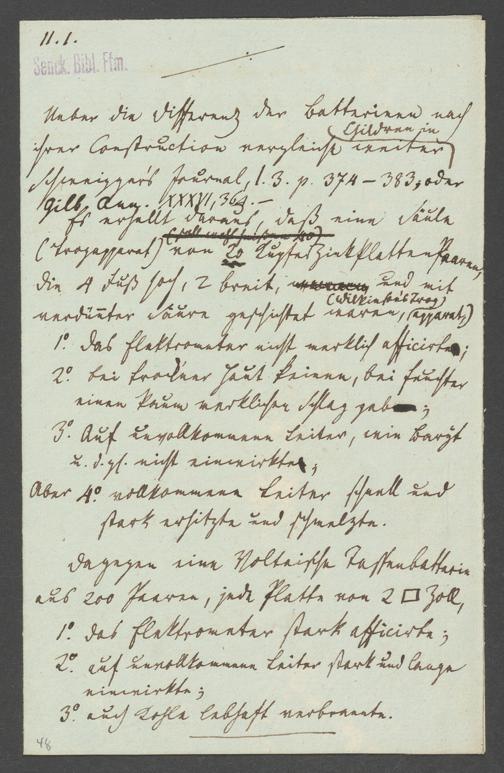 11.1.
Senck. Bibl. Ffm.
Ueber die Differenz der Batterieen nach
ihrer Construction vergleiche weiter
Children in
Schweigger's Journal, 1. 3. p. 374 – 383, oder
Gilb. Ann. XXXVI, 364. –
Es erhellt daraus, daß eine Säule
(Trogapparat) von 20 Kupfer Zink Platten Paaren,
die 4 Fuß hoch, 2 breit, und mit
verdünter Säure geschichtet waren,
(Wilkinson's Trog)
(apparat,)
1° das Elektrometer nicht merklich afficirte;
2° bei trockner Haut keinen, bei feuchter
einen kaum merklichen Schlag gab;
3° Auf unvollkommene Leiter, wie Harz
u. d. gl. nicht einwirkte;
Aber 4° vollkommene Leiter schnell und
stark erhitzte und schmelzte.
dagegen eine Voltaische Tassenbatterie
aus 200 Paaren, jede Platte von 2 □ Zoll,
1° das Elektrometer stark afficirte;
2° auf unvollkommene Leiter stark und lange
einwirkte;
3° auch Kohle lebhaft verbrannte.
48